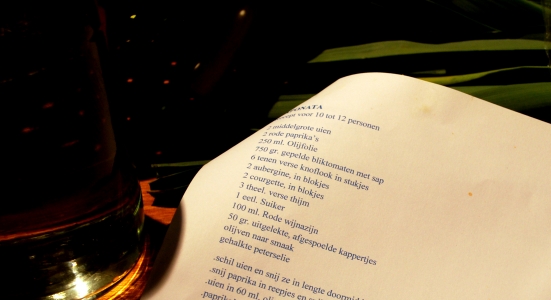 ONATA
voor 10 tot 12 personen
2 middelgrote uien
2 rode paprika's
250 ml. Olijfolie
750 gr. gepelde bliktomaten met sap
6 tenen verse knoflook in stukjes
2 aubergine, in blokjes
2 courgette, in blokjes
3 theel. verse thijm
1 eetl. Suiker
100 ml. Rode wijnazijn
50 gr. uitgelekte, afgespoelde kappertjes
olijven naar smaak
gehalkte peterselie
.schil uien en snij ze in lengte doormid
.snij paprika in reepjes en
.uien in 60 ml.